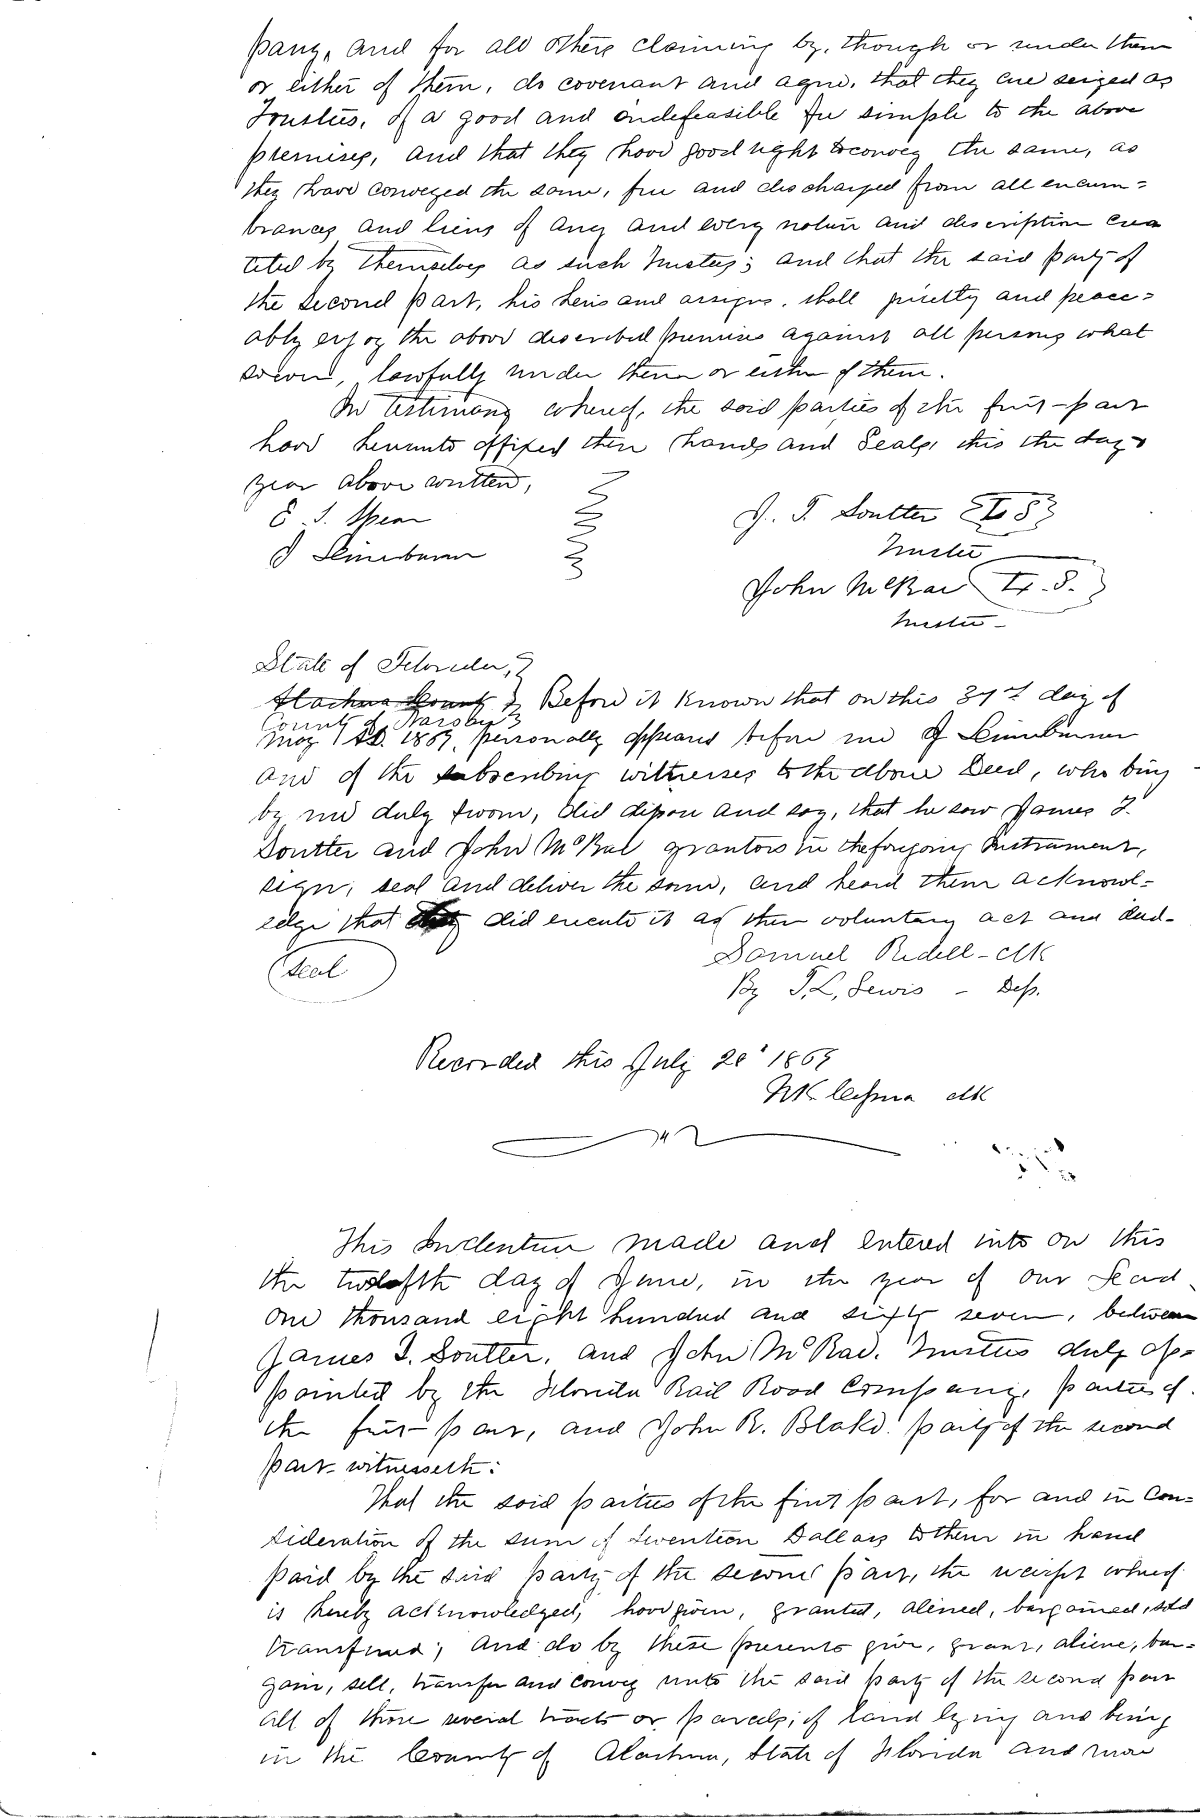 pany, and for all others claiming by, though or under them
or either of them, do covenant and agree, that they are seized as
Trustees, of a good and indefeasible fee simple to the above
premises, and that they have good right to convey the same, as
they have conveyed the same, free and discharged from all encum=
brances and liens of any and every nature and description crea
ted by themselves as such Trustees; and that the said party of
the second part, his heirs and assigns, shall quietly and peace=
ably enjoy the above described premises against all persons what
soever, lawfully under them or either of them.
In testimony whereof, the said parties of the first-part
have hereunto affixed their hands and Seals, this the day &
year above written,
E. J. Spear
J. T. Soutter L S
J
Trustee
John McRae L. S.
Trustee
State of Florida,
Alachua County
County of Nassau
Before it known that on this 31st day of
May AD. 1869, personally appeared before me J
and of the subscribing witnesses to the above Deed, who being
by me duly sworn, did depose and say, that he saw James T.
Soutter and John McRae grantors in the foregoing Instrument,
sign, seal and deliver the same, and heard them acknowl=
edge that they did execute it as their voluntary act and deed-
Seal
Samuel Ridell - clk
By T. L. Lewis - Dep.
Recorded this July 28" 1869
clk
This Indenture made and entered into on this
the twelfth day of June, in the year of our Lord
one thousand eight hundred and sixty seven, between
James T. Soutter, and John McRae, Trustees duly ap=
pointed by the Florida Rail Road Company, parties of
the first-part, and John R. Blake party of the second
part-witnesseth:
That the said parties of the first part, for and in con=
sideration of the sum of seventeen Dollars to them in hand
paid by the said party of the second part, the reciept whereof
is hereby acknowledged, have given, granted, aliened, bargained, sold
transfered; and do by these presents give, grant, aliene, bar=
gain, sell, transfer and convey unto the said party of the second part
all of those several tracts or parcels, of land lying and being
in the County of Alachua, State of Florida and more